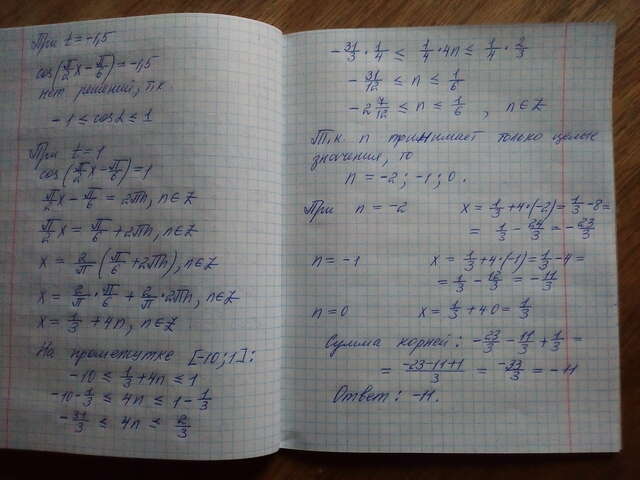 При t = -1,5
cos(π/2 x - π/6) = -1,5
нет решений, т.к.
-1 ≤ cos α ≤ 1
При t = 1
cos(π/2 x - π/6) = 1
π/2 x - π/6 = 2πn, n∈Z
π/2 x = π/6 + 2πn, n∈Z
x = 2/π (π/6 + 2πn), n∈Z
x = 2/π · π/6 + 2/π · 2πn, n∈Z
x = 1/3 + 4n, n∈Z
На промежутке [-10; 1]:
-10 ≤ 1/3 + 4n ≤ 1
-10 - 1/3 ≤ 4n ≤ 1 - 1/3
-31/3 ≤ 4n ≤ 2/3
-31/3 · 1/4 ≤ 1/4 · 4n ≤ 1/4 · 2/3
-31/12 ≤ n ≤ 1/6
-2 7/12 ≤ n ≤ 1/6, n∈Z
Т.к. n принимает только целые
значения, то
n = -2; -1; 0.
При n = -2 x = 1/3 + 4·(-2) = 1/3 - 8 =
= 1/3 - 24/3 = -23/3
n = -1 x = 1/3 + 4·(-1) = 1/3 - 4 =
= 1/3 - 12/3 = -11/3
n = 0 x = 1/3 + 4·0 = 1/3
Сумма корней: -23/3 - 11/3 + 1/3 =
= (-23-11+1)/3 = -33/3 = -11
Ответ: -11.